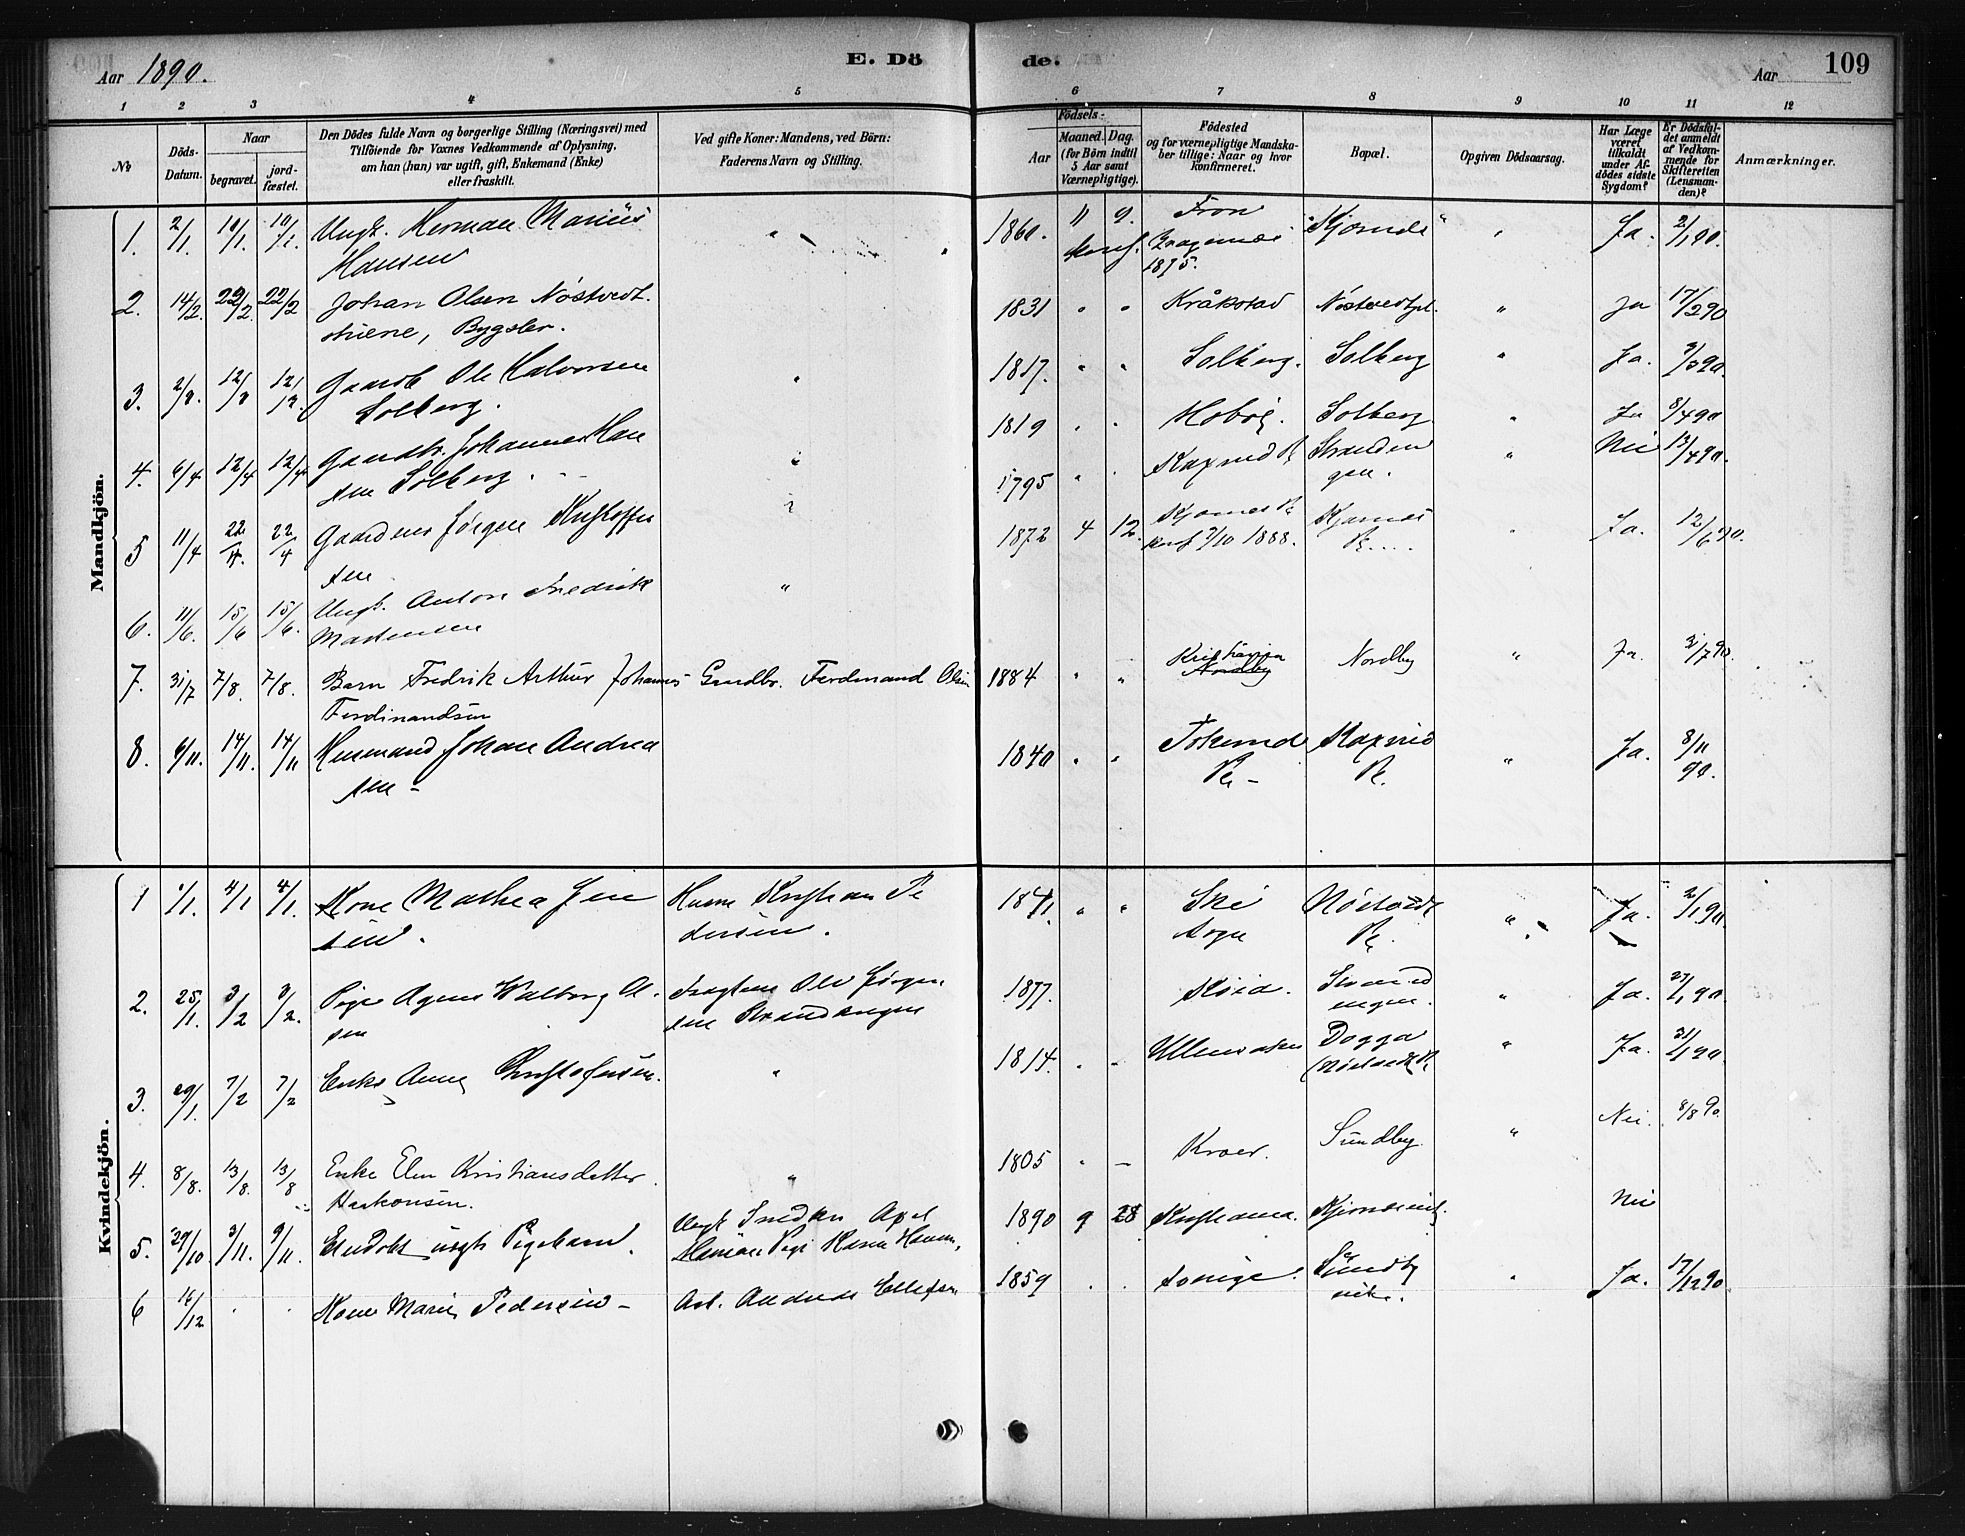 Aar 1890.
E. Dö
de.
Aar
109
1 2 3 4 5 6 7 8 9 10 11 12
№
Döds-
Datum.
Naar
begravet.
jord-
fæstet.
Den Dödes fulde Navn og borgerlige Stilling (Næringsvei) med
Tilföiende for Voxnes Vedkommende af Oplysning,
om han (hun) var ugift, gift, Enkemand (Enke)
eller fraskilt.
Ved gifte Koner: Mandens, ved Børn:
Faderens Navn og Stilling.
Aar
Födsels-
Maaned. Dag.
(for Börn indtil
5 Aar samt
Værnepligtige).
Födested
og for værnepligtige Mandska-
ber tillige: Naar og hvor
konfirmeret.
Bopæl.
Opgiven Dödsaarsag.
Har Læge
været
tilkaldt
under Af-
dödes sidste
Sygdom?
Er Dödsfal-
det anmeldt
af Vedkom-
mende for
Skifteretten
(Lensman-
den)?
Anmærkninger.
Mandkjön.
1. 2/1. 10/1. 10/1. Ungk. Herman Marius " 1860. 11 9. Fron "Kjærnes" " Ja. 2/1 90.
Hansen konf. Dragernæs
1875.
2. 14/2. 22/2. 22/2 Johan Olsen Nøstvedt- 1831 " " Kråkstad Nøstvedtpl. " Ja 17/2 90
stuene, Bygsler.
3. 12/3 12/3. Gaardb. Ole Halvorsen " 1817. " " Solberg. Solberg " Ja. 3/3 90.
Solberg.
4. 6/4 12/4 12/4 Gaardbr. Johannes Han " 1819 " " Hobøl. Solberg " Ja 8/4 90
sen Solberg.
5 11/4 22/4. 22/4 Gaardens Jørgen Kristoffer " 1795 " " Stranden " Nei 12/4 90.
sen gen.
6. 11/6. 15/6 15/6. Ungk. Anton Fredrik " 1872 4 12. Kjærnes Pl. Kjærnes " Ja. 12/6 90.
Martensen konf 7/10 1888. Pl.
7. 31/7 7/8. 7/8. Barn Fredrik Arthur Johannes Gmdbr. Ferdinand Olsen 1884 " " Kristiania Nordby " Ja. 31/7 90.
Ferdinandsen Nordby
8. 6/11. 14/11. 14/11 Husmand Johan Andrea 1840 " " Tokerud Kaxrud " Ja. 8/11
sen - Pl - Pl. 90.
Kvindekjön.
1 1/1. 4/1 4/1. Kone Mathea Jen Husm Kristian Pe 1841. " " Ski Nöstvedt " Ja. 2/1 90.
sen. dersen. sogn Pl.
2. 25/1. 3/2 3/2. Pige Agnes Walborg Ol. Ole Jørgen 1877. Strand " Ja. 27/1 90.
sen sen Strandengen engen.
3. 29/1. 7/2 7/2 Enke Anne Kristofersen. " 1814. " " Ullensaker Dogga " Ja. 31/1 90.
(Nöstvedt Pl
4. 8/8. 13/8. 13/8 Enke Elen Kristiansdatter. " 1805 " - Kroer. Sundby " Nei. 8/8 90.
Haakonsen.
5. 29/10 3/11. 9/11. Endøbt uægte Pigebarn. Ungk Snedker Axel 1890 9 28 Kristiania. Nei
Hansen Pige Karen Hansen,
6 14/12 . . Kone Marie Pedersen - Arb. Andreas Ellefsen 1859 . . Sverige. Sundby " Ja. 17/12 90.